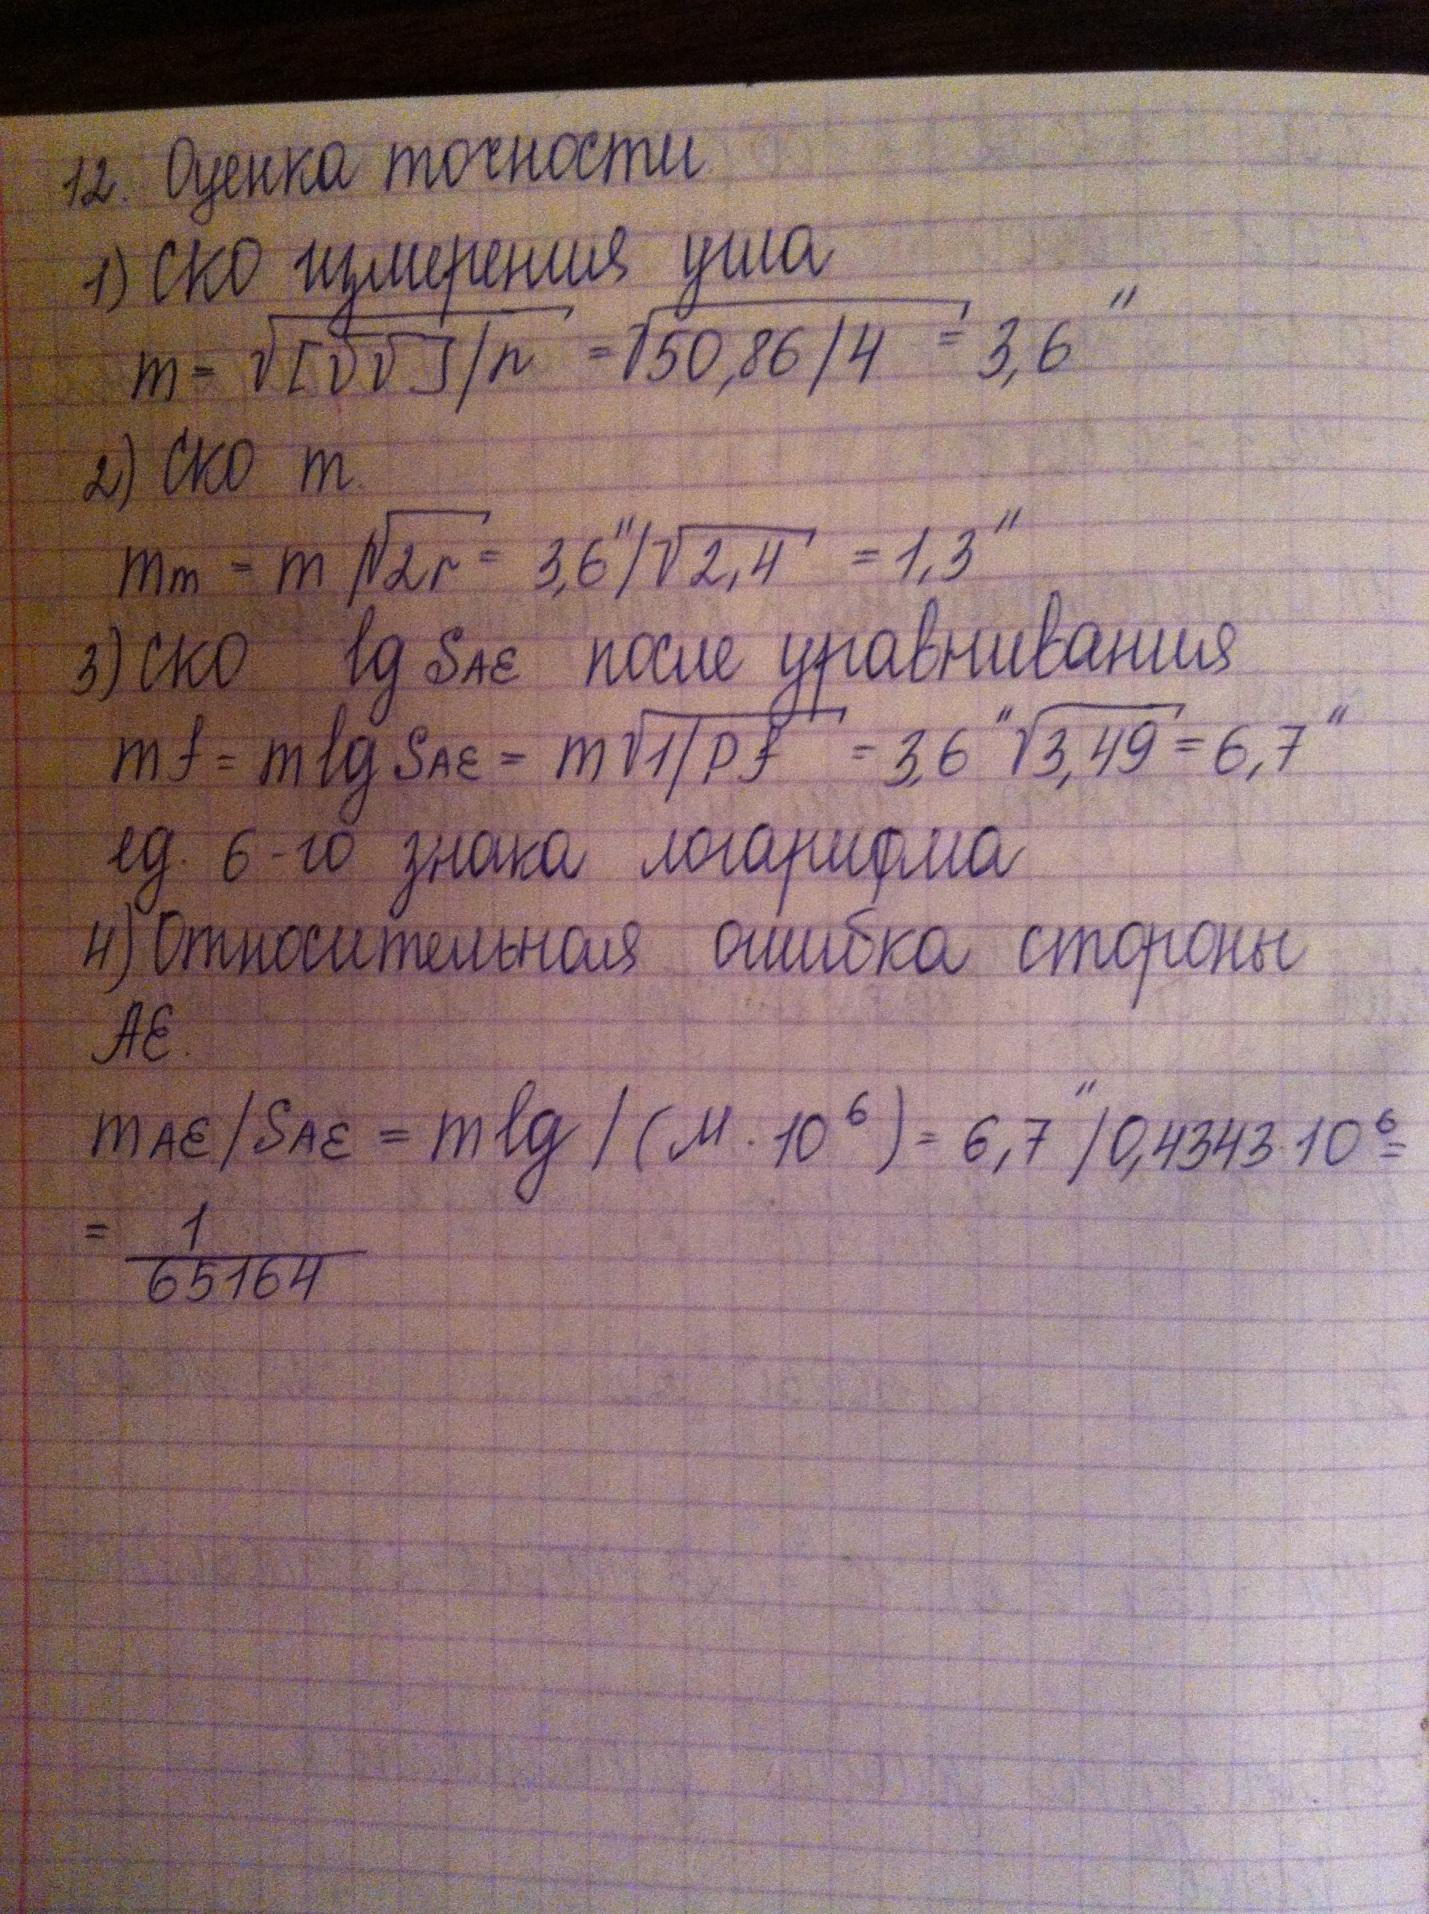 12. Оценка точности
1) СКО измерения угла
m = √[√√]/r = √50,86/4 = 3,6″
2) СКО m.
mm = m/√2r = 3,6″/√2,4 = 1,3″
3) СКО lg SAE после уравнивания
mf = mlg SAE = m√1/Pf = 3,6″√3,49 = 6,7″
ед. 6-го знака логарифма
4) Относительная ошибка стороны
AE.
mAE/SAE = mlg/(М·10⁶) = 6,7″/0,4343·10⁶ =
= 1/65164